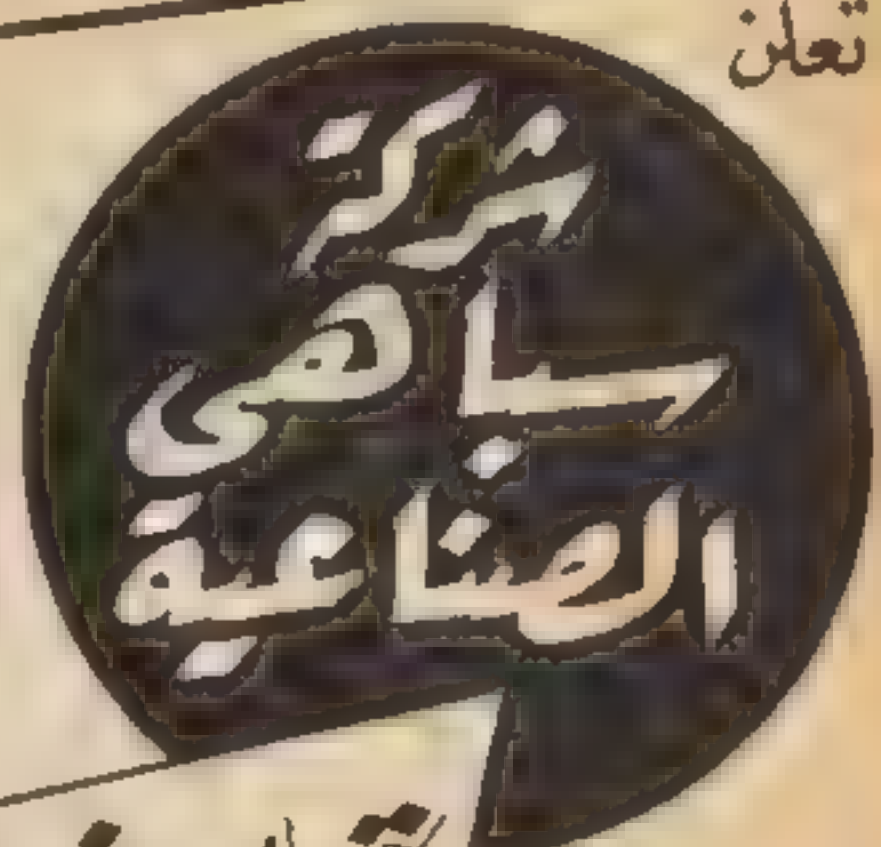 تعلن
شركة
ساهي
الصناعية